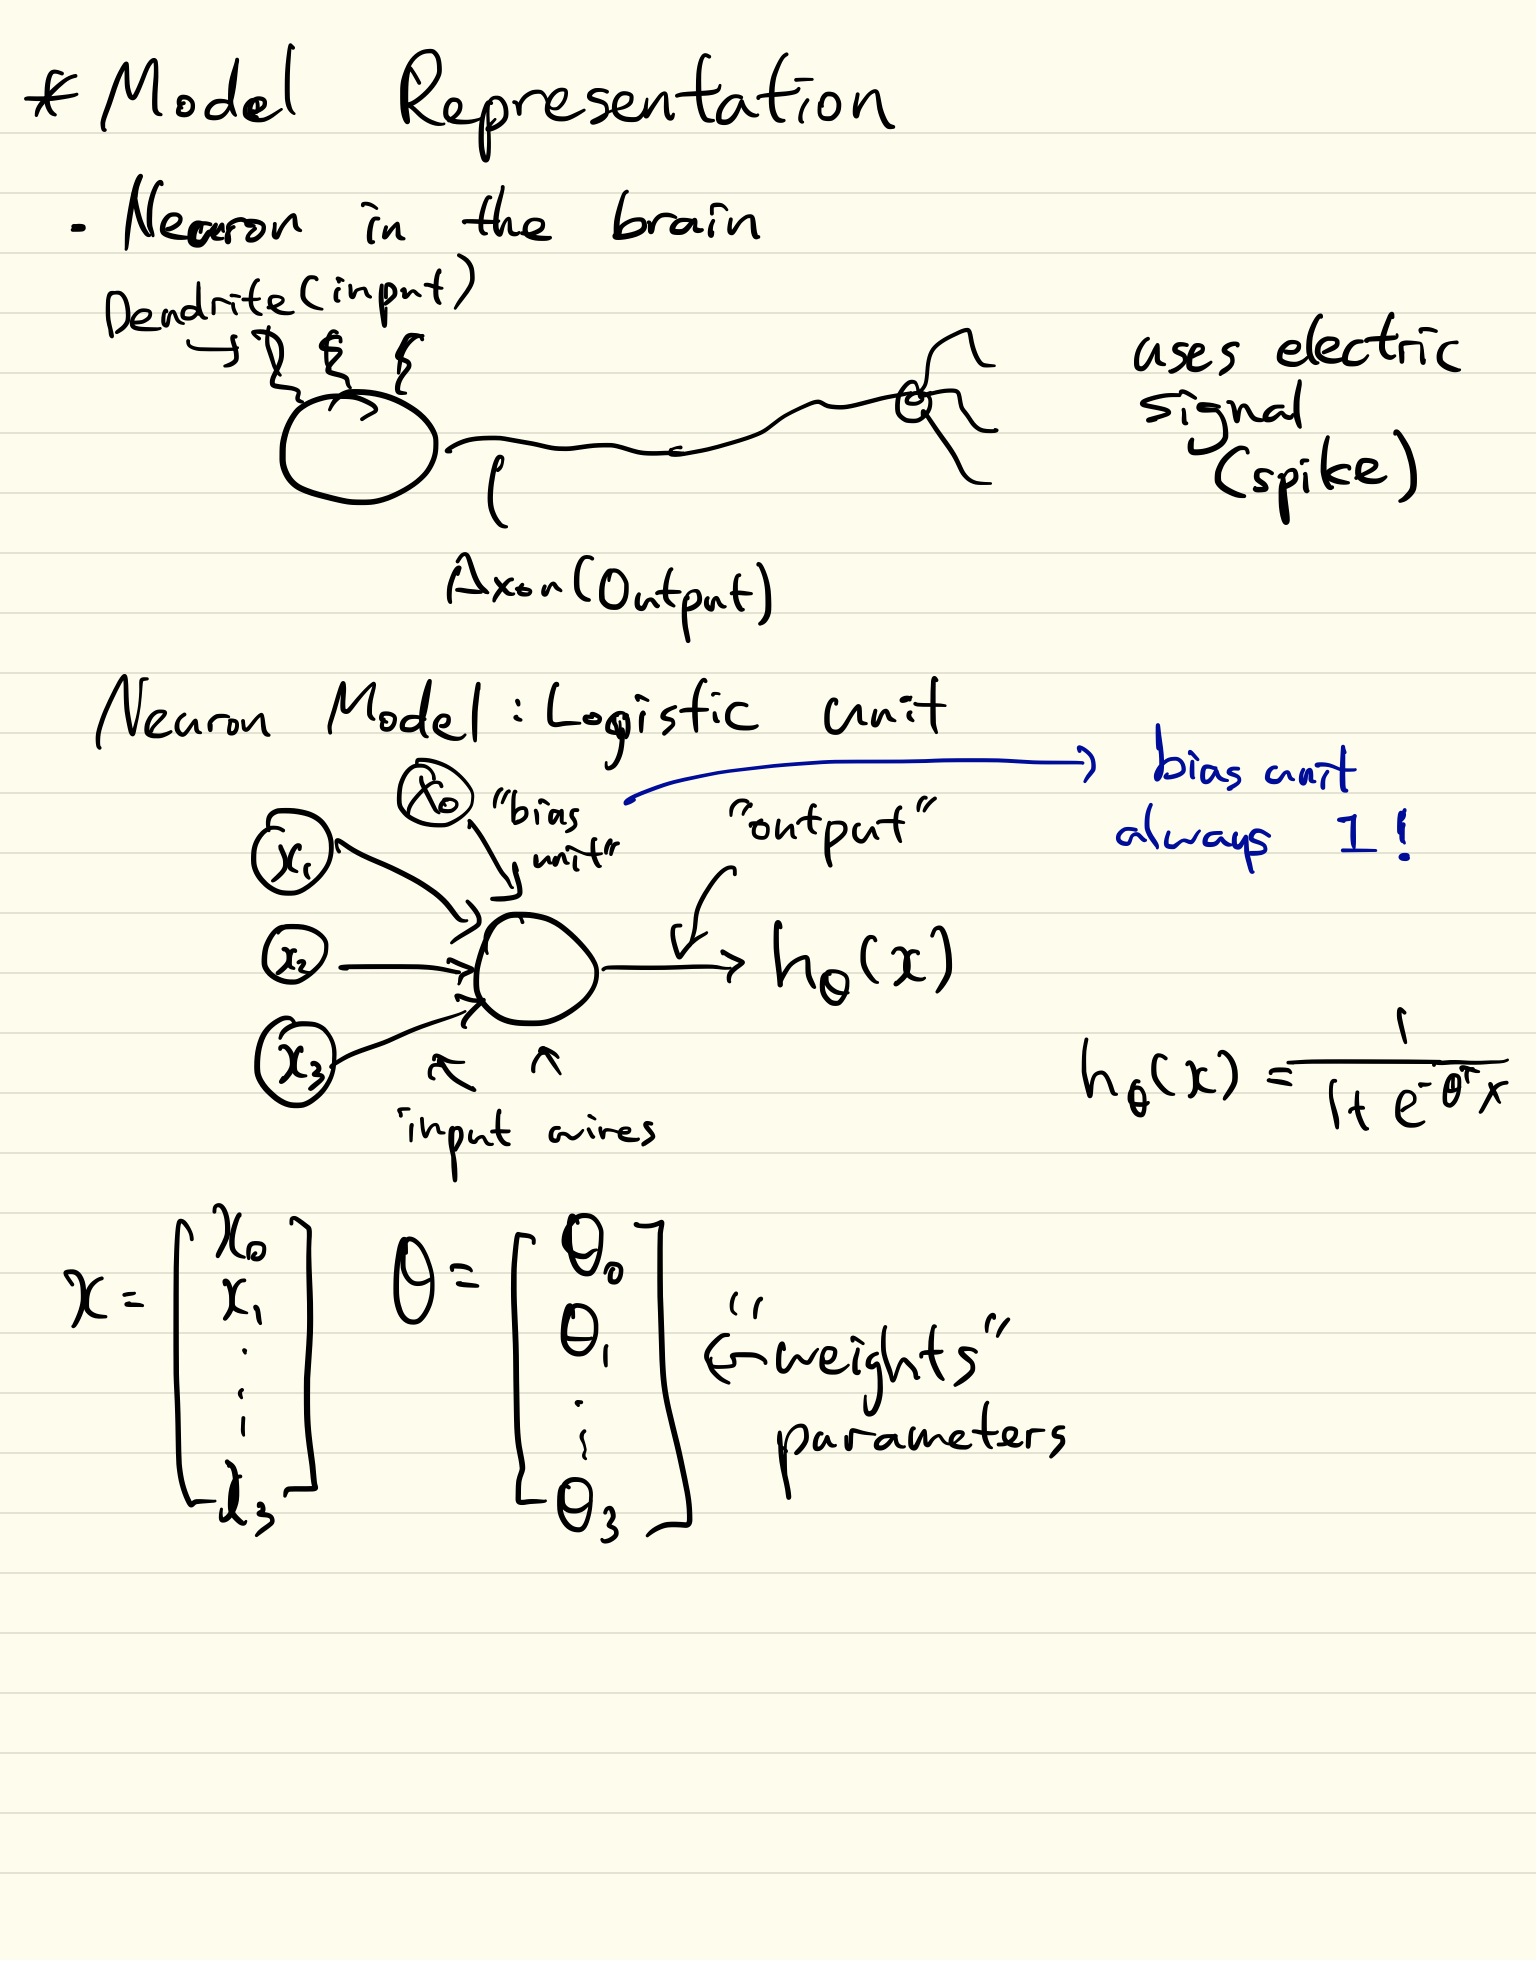 * Model Representation
- Neuron in the brain
Dendrite (input)
uses electric
signal
(spike)
Axon (Output)
Neuron Model : Logistic unit
x₀ "bias
unit"
bias unit
always 1!
"output"
x₁
x₂
hθ(x)
x₃
hθ(x) = 1 / (1 + e^(-θᵀx))
input wires
x = [x₀ x₁ ⋮ x₃] θ = [θ₀ θ₁ ⋮ θ₃]
"weights"
parameters